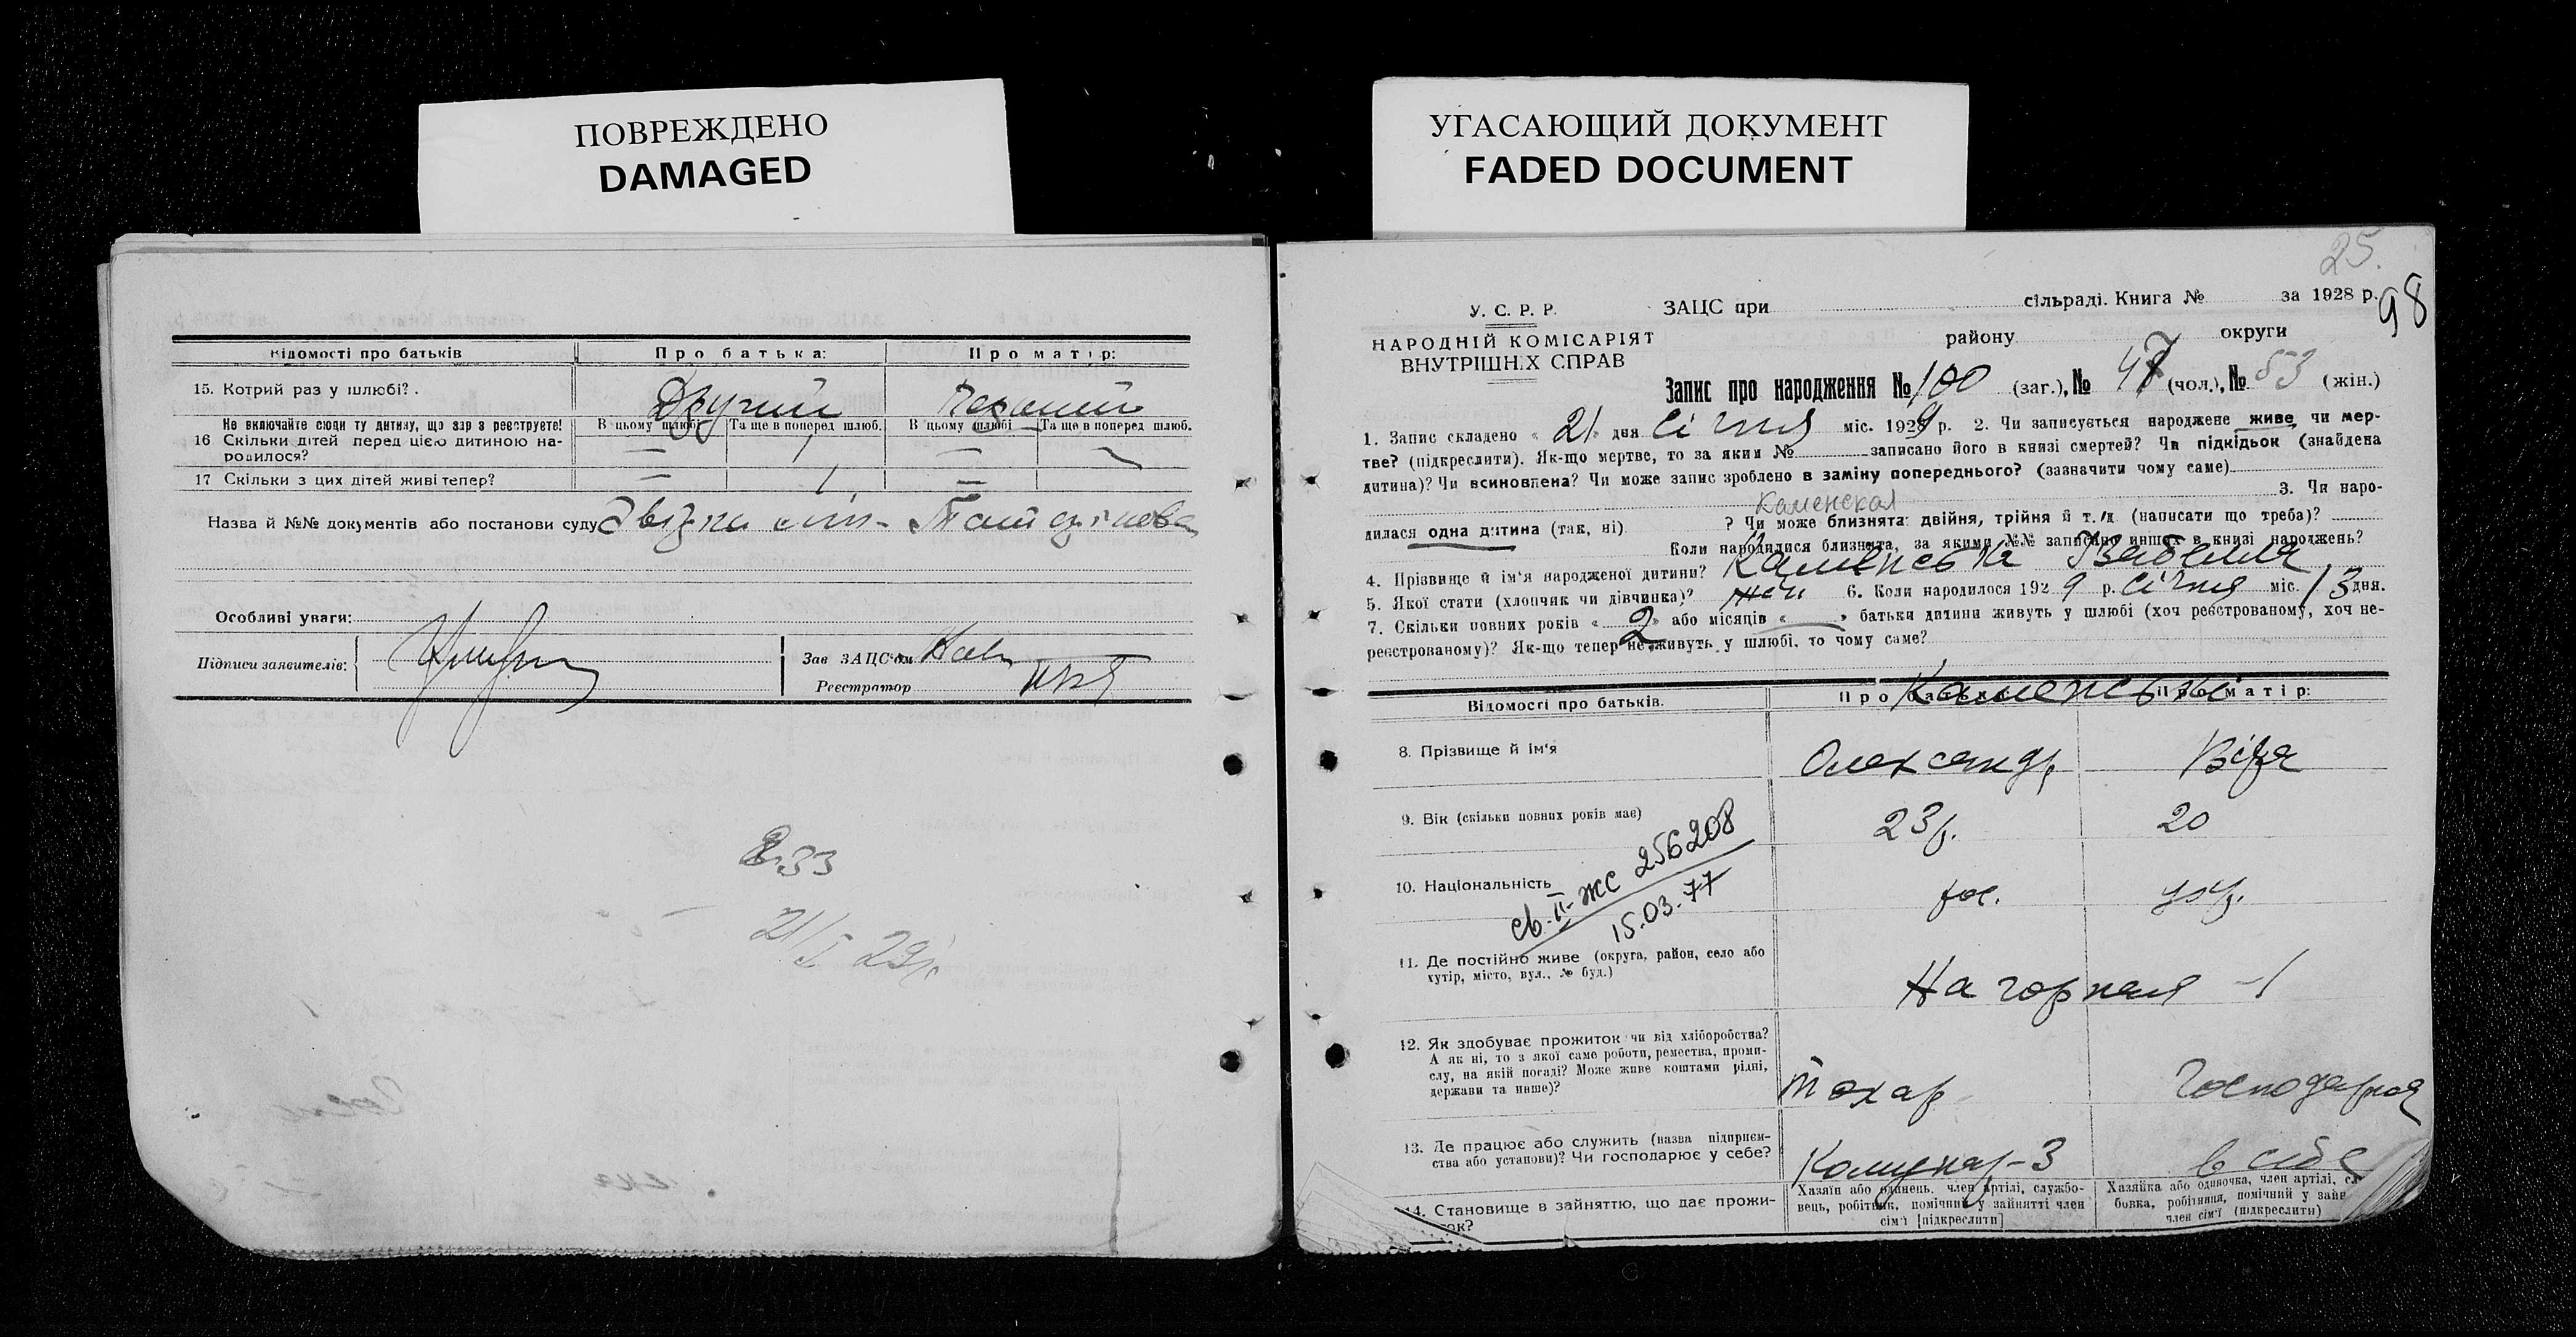 ПОВРЕЖДЕНО
DAMAGED
УГАСАЮЩИЙ ДОКУМЕНТ
FADED DOCUMENT
Відомості про батьків
Про батька:
Про матір:
15. Котрий раз у шлюбі?
Другий
Перший
Не включайте сюди ту дитину, що зар з реєструєте!
В цьому шлюбі
Та ще в поперед шлюб.
В цьому шлюбі
Та ще в поперед шлюб.
16 Скільки дітей перед цією дитиною на-
родилося?
— 1 — —
17 Скільки з цих дітей живі тепер?
— 1 —
Назва й №№ документів або постанови суду
Особливі уваги:
Підписи заявителів:
Зав ЗАЦС'ом
Реєстратор
833
21/I 29р.
25.
98
У. С. Р. Р.
НАРОДНІЙ КОМІСАРІЯТ
ВНУТРІШНІХ СПРАВ
ЗАЦС при сільраді. Книга № за 1928 р.
району округи
Запис про народження № 100 (заг.), № 47 (чол.), № 53 (жін.)
1. Запис складено « 21 » дня січня міс. 1929 р. 2. Чи записується народжене живе чи мер-
тве? (підкреслити). Як-що мертве, то за яким № записано його в книзі смертей? Чи підкідьок (знайдена
дитина)? Чи всиновлена? Чи може запис зроблено в заміну попереднього? (зазначити чому саме)
3. Чи наро-
Каменская
дилася одна дитина (так, ні) ? Чи може близнята: двійня, трійня й т. д. (написати що треба)?
Коли народилися близнята, за якими №№ записано инших в книзі народжень?
4. Прізвище й ім'я народженої дитини? Каменська Ізабелла
5. Якої стати (хлопчик чи дівчинка)? жін 6. Коли народилося 1929 р. січня міс. 13 дня.
7. Скільки повних років « 2 » або місяців « — » батьки дитини живуть у шлюбі (хоч реєстрованому, хоч не-
реєстрованому)? Як-що тепер не живуть у шлюбі, то чому саме?
Відомості про батьків.
Про батька:
Про матір:
Каменські
8. Прізвище й ім'я
Олександр
Віра
9. Вік (скільки повних років має)
23р.
20
10. Національність
рос.
укр.
св. II-ЖС 256208
15.03.77
11. Де постійно живе (округа, район, село або
хутір, місто, вул., № буд.)
Нагорная -1
12. Як здобуває прожиток чи від хліборобства?
А як ні, то з якої саме роботи, ремества, проми-
слу, на якій посаді? Може живе коштами рідні,
держави та инше)?
токар
Господарноя
13. Де працює або служить (назва підприєм-
ства або установи)? Чи господарює у себе?
Комунар-3
в себе
14. Становище в зайняттю, що дає прожи-
ток?
Хазяїн або одинець, член артілі, службо-
вець, робітник, помічний у зайнятті член
сім'ї [підкреслити]
Хазяйка або одиночка, член артілі, сл
бовка, робітниця, помічний у зайн
член сім'ї (підкреслити)